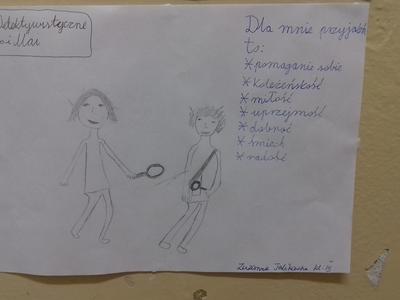 Detektywistyczne
i Mai
Dla mnie przyjaźń
to:
* pomaganie sobie
* Koleżeńskość
* miłość
* uprzejmość
* dobroć
* śmiech
* radość
Zuzanna kl.